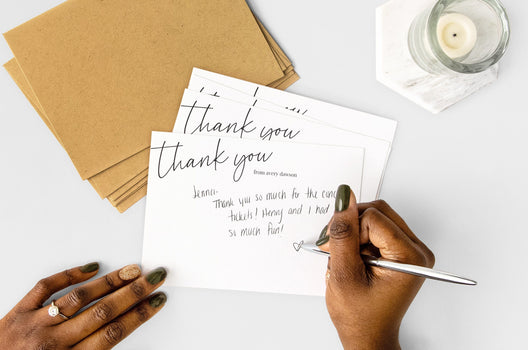 thank you
thank you
from avery dawson
Jenna-
Thank you so much for the
tickets! Henry and I had
so much fun!